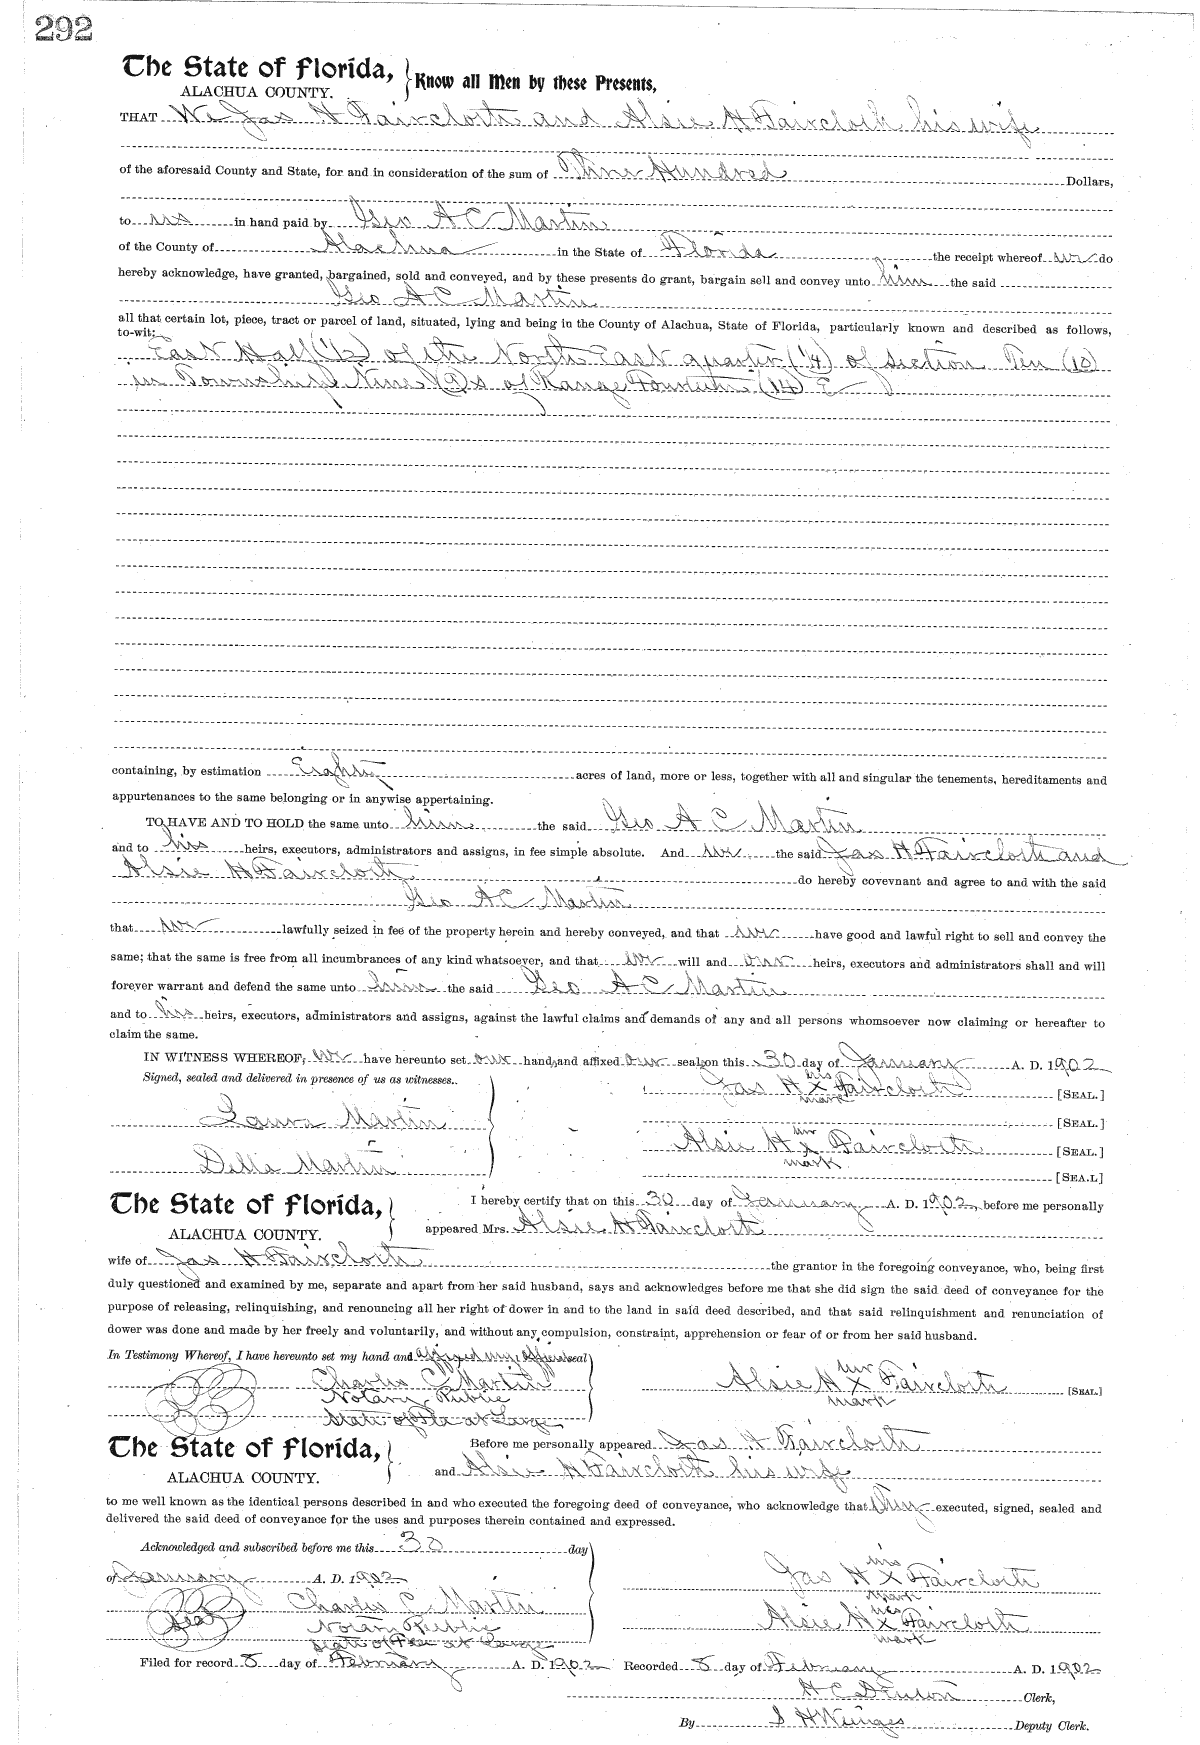 292
The State of Florida, } Know all Men by these Presents,
ALACHUA COUNTY.
THAT We Jas H Faircloth and Alsie H Faircloth his wife
of the aforesaid County and State, for and in consideration of the sum of Nine Hundred Dollars,
to us in hand paid by Geo A C Martin
of the County of Alachua in the State of Florida the receipt whereof we do
hereby acknowledge, have granted, bargained, sold and conveyed, and by these presents do grant, bargain sell and convey unto him the said
Geo A C Martin
all that certain lot, piece, tract or parcel of land, situated, lying and being in the County of Alachua, State of Florida, particularly known and described as follows,
to-wit:
East Half (1/2) of the North East quarter (1/4) of Section Ten (10)
in Township Nine (9) S of Range Fourteen (14) E
containing, by estimation Eighty acres of land, more or less, together with all and singular the tenements, hereditaments and
appurtenances to the same belonging or in anywise appertaining.
TO HAVE AND TO HOLD the same unto him the said Geo A C Martin
and to his heirs, executors, administrators and assigns, in fee simple absolute. And we the said Jas H Faircloth and
Alsie H Faircloth do hereby covevnant and agree to and with the said
Geo A C Martin
that we lawfully seized in fee of the property herein and hereby conveyed, and that we have good and lawful right to sell and convey the
same; that the same is free from all incumbrances of any kind whatsoever, and that we will and our heirs, executors and administrators shall and will
forever warrant and defend the same unto him the said Geo A C Martin
and to his heirs, executors, administrators and assigns, against the lawful claims and demands of any and all persons whomsoever now claiming or hereafter to
claim the same.
IN WITNESS WHEREOF, we have hereunto set our hand and affixed our seal on this 30 day of January A. D. 1902
Signed, sealed and delivered in presence of us as witnesses.
his
Jas H X Faircloth [SEAL.]
mark
Laura Martin [SEAL.]
her
Alsie H X Faircloth [SEAL.]
mark
Della Martin [SEA.L]
The State of Florida, } I hereby certify that on this 30 day of January A. D. 1902, before me personally
ALACHUA COUNTY. appeared Mrs. Alsie H Faircloth
wife of Jas H Faircloth the grantor in the foregoing conveyance, who, being first
duly questioned and examined by me, separate and apart from her said husband, says and acknowledges before me that she did sign the said deed of conveyance for the
purpose of releasing, relinquishing, and renouncing all her right of dower in and to the land in said deed described, and that said relinquishment and renunciation of
dower was done and made by her freely and voluntarily, and without any compulsion, constraint, apprehension or fear of or from her said husband.
In Testimony Whereof, I have hereunto set my hand and affixed my official seal
her
Charles C Martin Alsie H X Faircloth [SEAL.]
Notary Public mark
State of Fla at Large
The State of Florida, } Before me personally appeared Jas H Faircloth
ALACHUA COUNTY. and Alsie H Faircloth his wife
to me well known as the identical persons described in and who executed the foregoing deed of conveyance, who acknowledge that they executed, signed, sealed and
delivered the said deed of conveyance for the uses and purposes therein contained and expressed.
Acknowledged and subscribed before me this 30 day
of January A. D. 1902
his
Jas H X Faircloth
mark
Seal Charles C Martin
Notary Public
State of Fla at Large
her
Alsie H X Faircloth
mark
Filed for record 8 day of February A. D. 1902 Recorded 8 day of February A. D. 1902
H C Denton Clerk,
By S H Wienges Deputy Clerk.